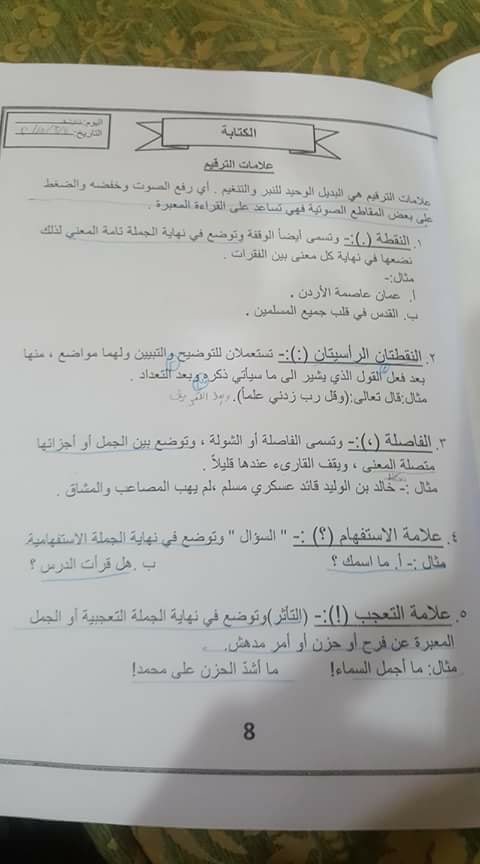 اليوم:
التاريخ:
الكتابة
علامات الترقيم
علامات الترقيم هي البديل الوحيد للنبر والتنغيم . أي رفع الصوت وخفضه والضغط
على بعض المقاطع الصوتية فهي تساعد على القراءة المعبرة .
١. النقطة (.):- وتسمى أيضاً الوقفة وتوضع في نهاية الجملة تامة المعنى لذلك
نضعها في نهاية كل معنى بين الفقرات .
مثال:-
أ. عمان عاصمة الأردن .
ب. القدس في قلب جميع المسلمين .
٢. النقطتان الرأسيتان (:):- تستعملان للتوضيح والتبيين ولهما مواضع ، منها
بعد فعل القول الذي يشير الى ما سيأتي ذكره وبعد التعداد .
مثال:قال تعالى:(وقل رب زدني علماً).
٣. الفاصلة (،):- وتسمى الفاصلة أو الشولة ، وتوضع بين الجمل أو أجزائها
متصلة المعنى ، ويقف القارىء عندها قليلاً .
مثال :- خالد بن الوليد قائد عسكري مسلم ،لم يهب المصاعب والمشاق .
٤. علامة الاستفهام (؟) :- " السؤال " وتوضع في نهاية الجملة الاستفهامية.
مثال :- أ. ما اسمك ؟ ب .هل قرأت الدرس ؟
٥. علامة التعجب (!):- (التأثر)وتوضع في نهاية الجملة التعجبية أو الجمل
المعبرة عن فرح أو حزن أو أمر مدهش.
مثال: ما أجمل السماء! ما أشدّ الحزن على محمد!
8